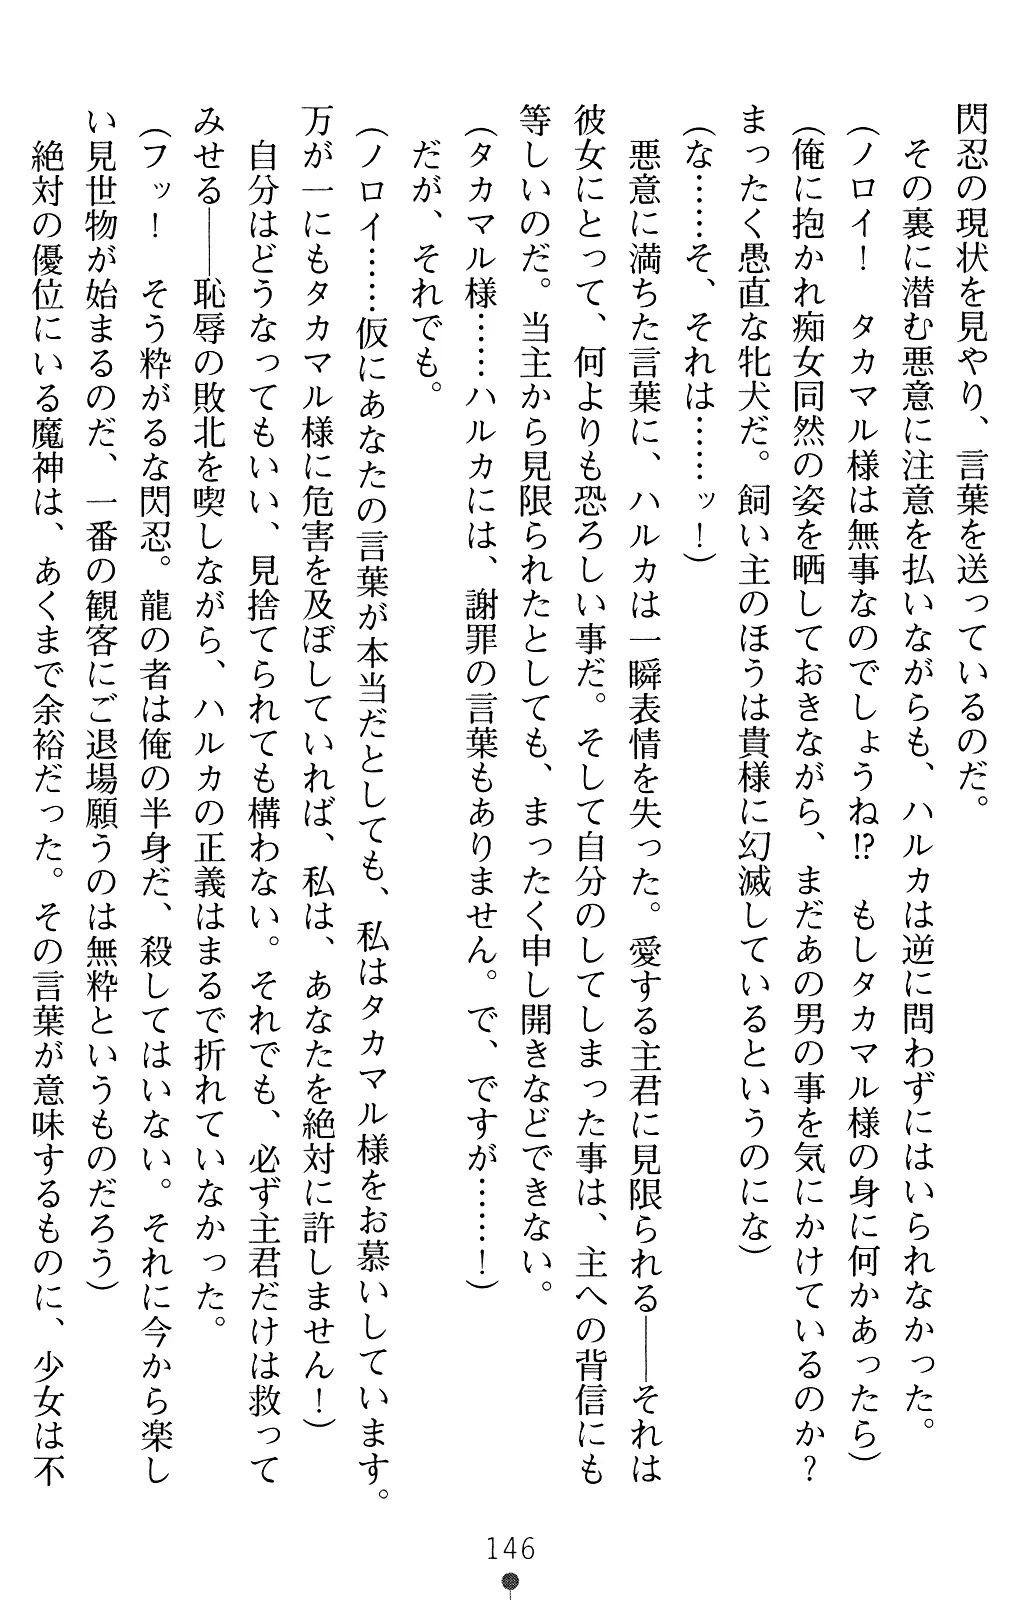 閃忍の現状を見やり、言葉を送っているのだ。
その裏に潜む悪意に注意を払いながらも、ハルカは逆に問わずにはいられなかった。
(ノロイ！　タカマル様は無事なのでしょうね!?　もしタカマル様の身に何かあったら)
(俺に抱かれ痴女同然の姿を晒しておきながら、まだあの男の事を気にかけているのか？
まったく愚直な牝犬だ。飼い主のほうは貴様に幻滅しているというのにな)
(な……そ、それは……ッ！)
悪意に満ちた言葉に、ハルカは一瞬表情を失った。愛する主君に見限られる――それは
彼女にとって、何よりも恐ろしい事だ。そして自分のしてしまった事は、主への背信にも
等しいのだ。当主から見限られたとしても、まったく申し開きなどできない。
(タカマル様……ハルカには、謝罪の言葉もありません。で、ですが……！)
だが、それでも。
(ノロイ……仮にあなたの言葉が本当だとしても、私はタカマル様をお慕いしています。
万が一にもタカマル様に危害を及ぼしていれば、私は、あなたを絶対に許しません！)
自分はどうなってもいい、見捨てられても構わない。それでも、必ず主君だけは救って
みせる――恥辱の敗北を喫しながら、ハルカの正義はまるで折れていなかった。
(フッ！　そう粋がるな閃忍。龍の者は俺の半身だ、殺してはいない。それに今から楽し
い見世物が始まるのだ、一番の観客にご退場願うのは無粋というものだろう)
絶対の優位にいる魔神は、あくまで余裕だった。その言葉が意味するものに、少女は不
146